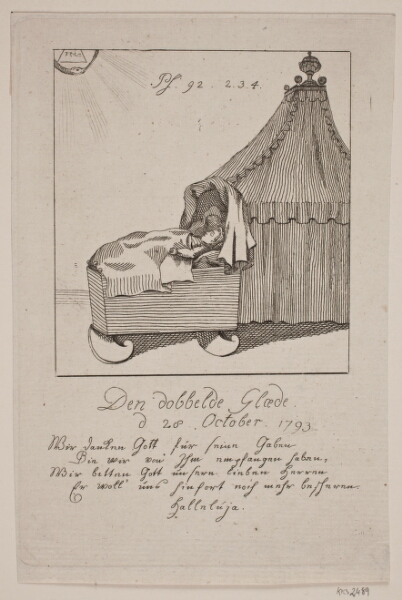 Ps. 92. 2.3.4.
Den dobbelde Glæde.
d 28 October. 1793.
Wir danken Gott für seine Gaben
Die wir von Ihm empfangen haben,
Wir bitten Gott unsern lieben Herren
Er woll uns hinfort noch mehr bescheren.
Halleluja.